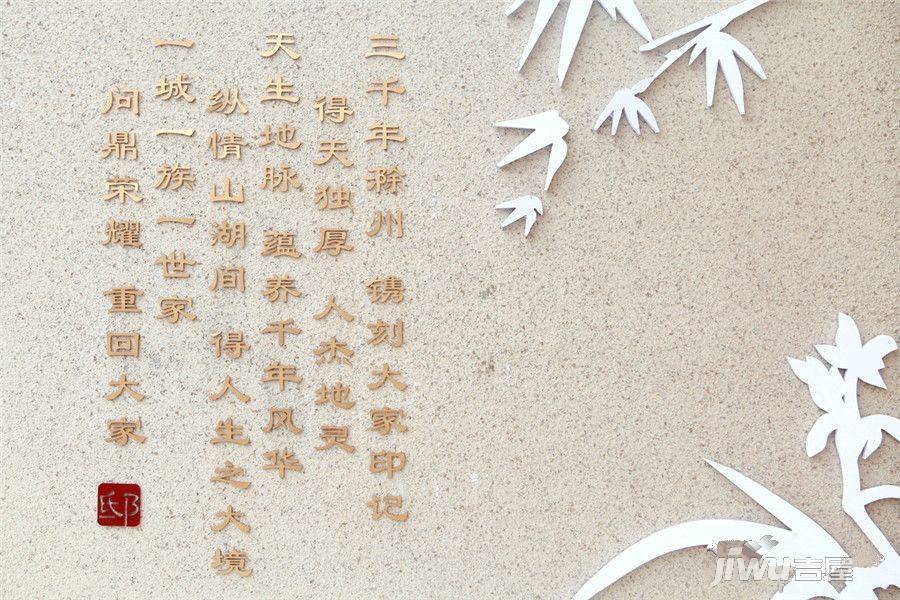 三千年滁州 镌刻大家印记
得天独厚 人杰地灵
天生地脉 蕴养千年风华
纵情山湖间 得人生之大境
一城一族一世家
问鼎荣耀 重回大家
邸
jiwu吉屋